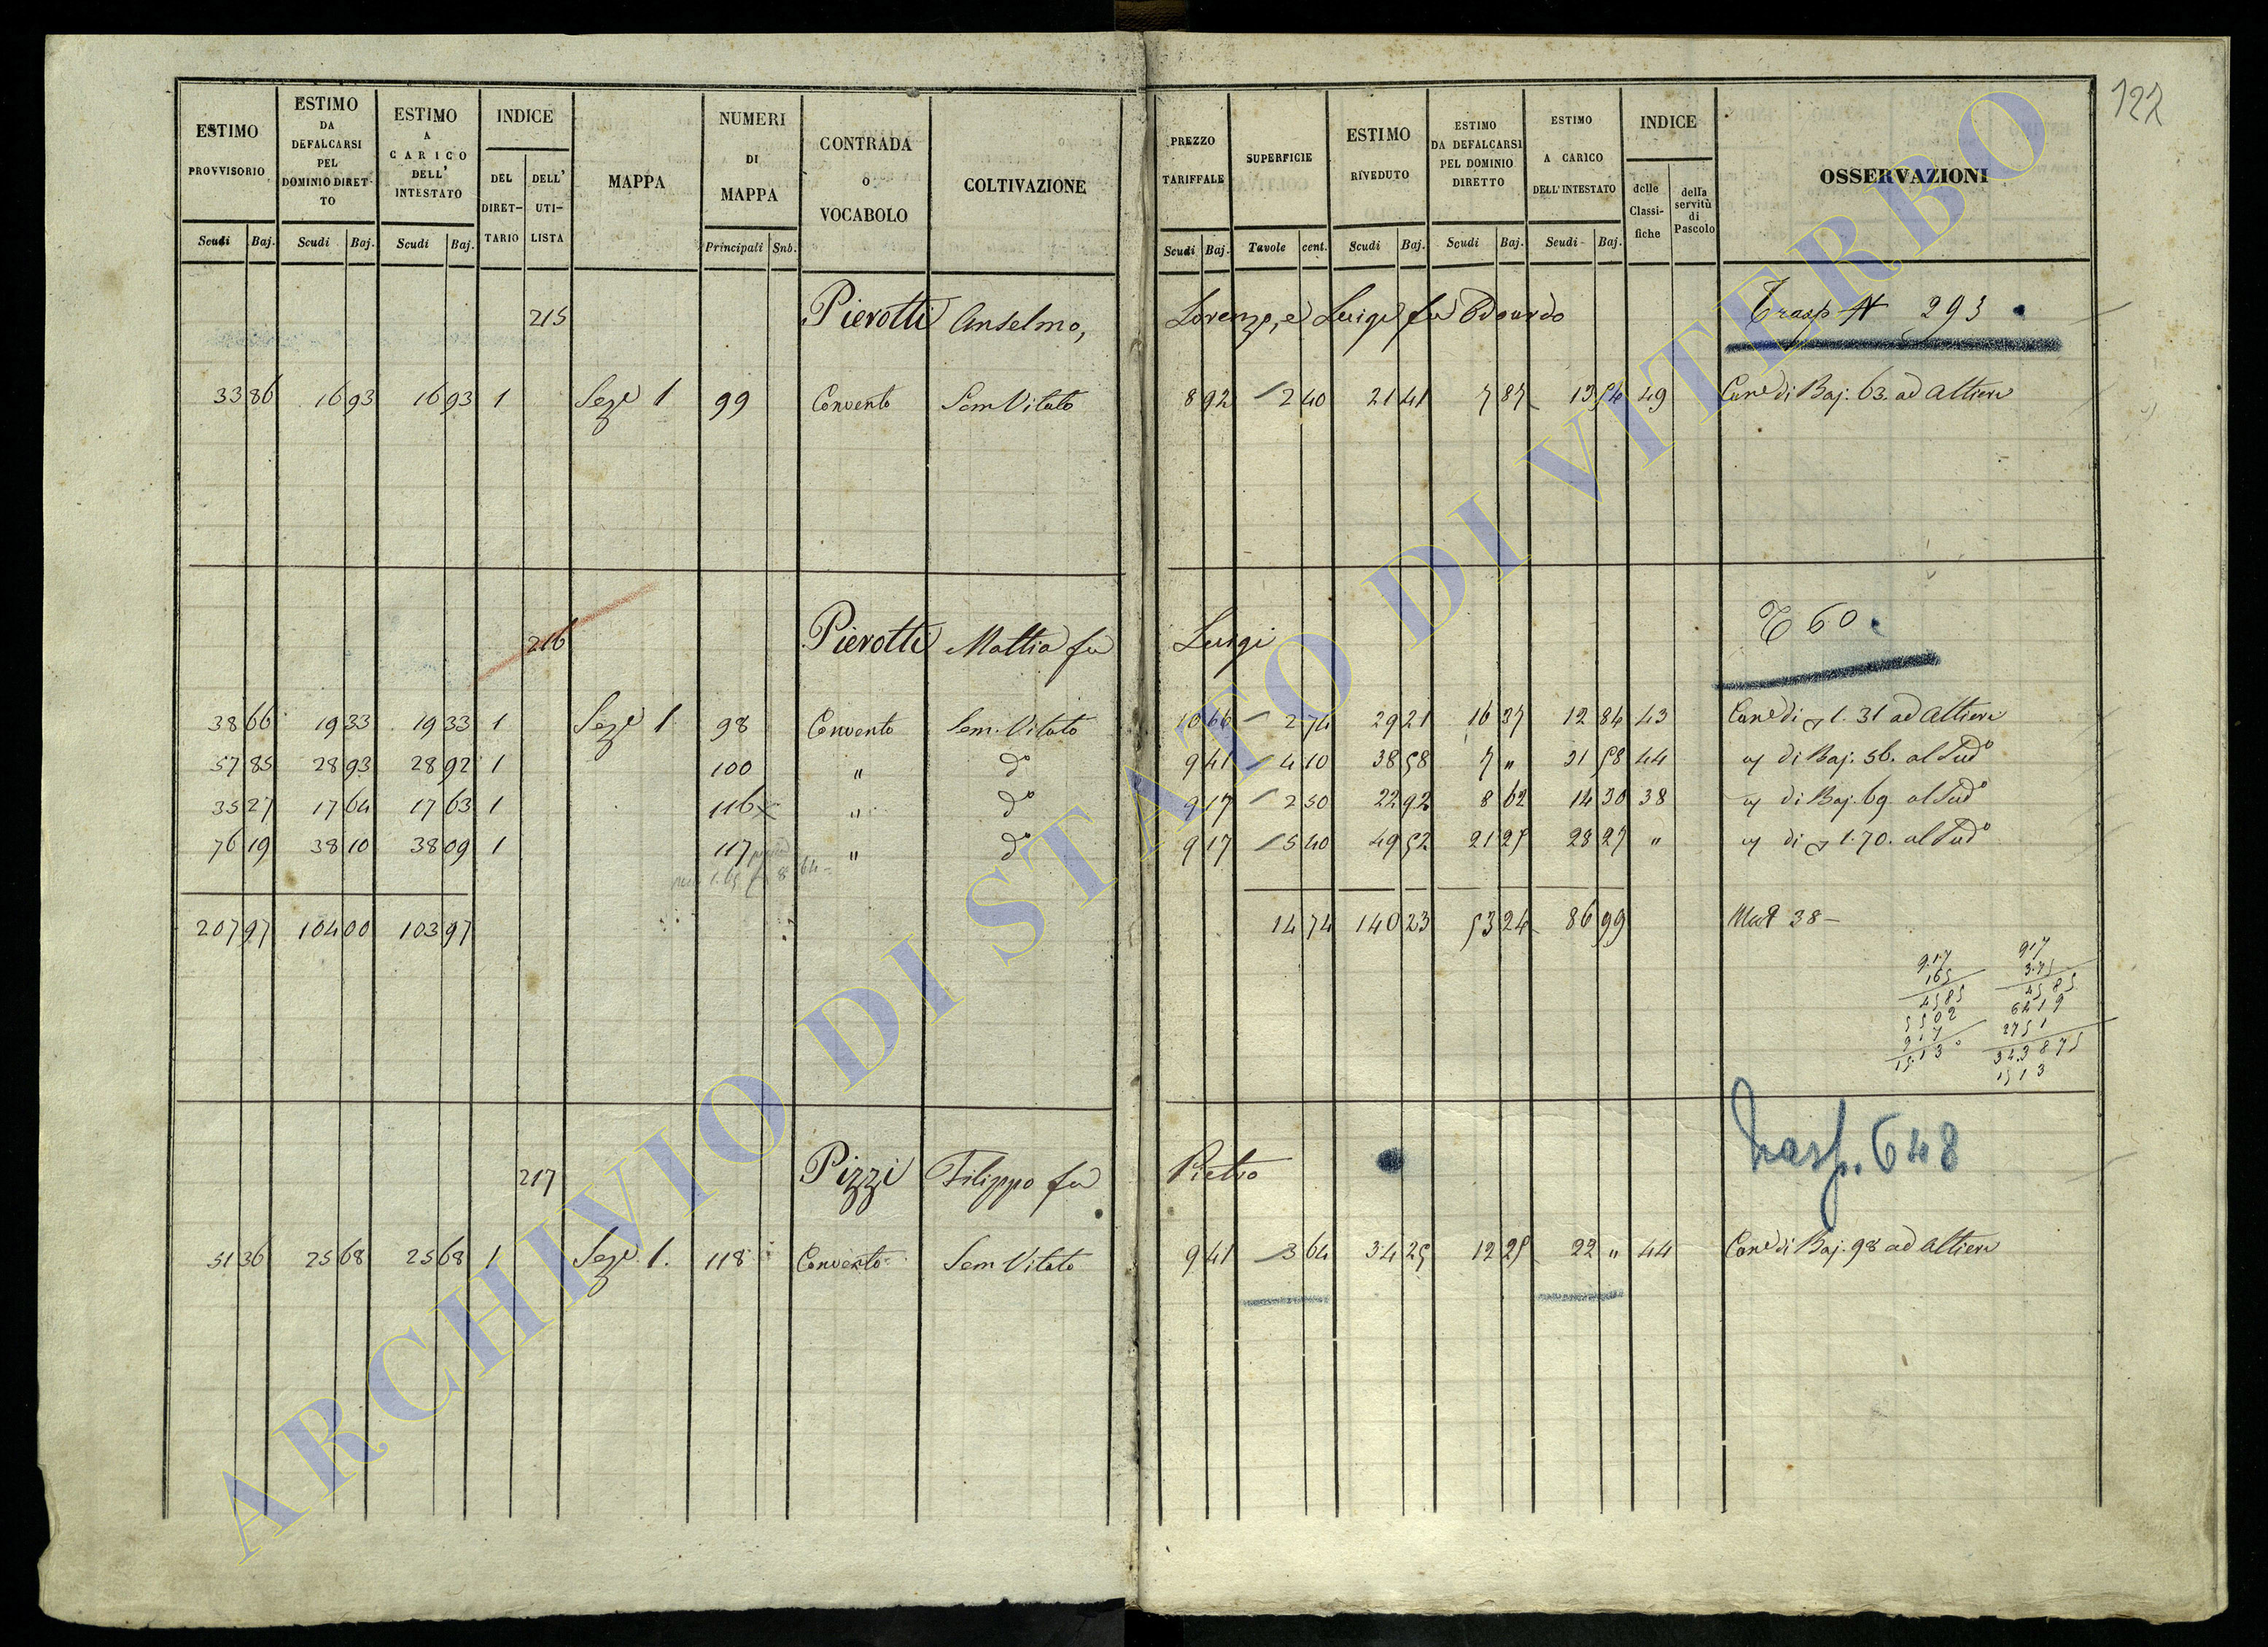 122
ESTIMO PROVVISORIO | ESTIMO DA DEFALCARSI PEL DOMINIO DIRET-TO | ESTIMO A CARICO DELL' INTESTATO | INDICE | MAPPA | NUMERI DI MAPPA | CONTRADA O VOCABOLO | COLTIVAZIONE | PREZZO TARIFFALE | SUPERFICIE | ESTIMO RIVEDUTO | ESTIMO DA DEFALCARSI PEL DOMINIO DIRETTO | ESTIMO A CARICO DELL' INTESTATO | INDICE | OSSERVAZIONI
DEL DIRET-TARIO | DELL' UTI-LISTA | delle Classi-fiche | della servitù di Pascolo
Scudi | Baj. | Scudi | Baj. | Scudi | Baj. | Principali | Snb. | Scudi | Baj. | Tavole | cent. | Scudi | Baj. | Scudi | Baj. | Scudi | Baj.
215 Pierotti Anselmo, Lorenzo, e Luigi fu Edoardo Trasp N 293
33 86 16 93 16 93 1 Seze 1 99 Convento Sem Vitato 8 92 2 40 21 41 7 87 13 54 49 Cane di Baj. 63. ad Altieri
216 Pierotti Mattia fu Luigi T 60
38 66 19 33 19 33 1 Seze 1 98 Convento Sem. Vitato 10 66 2 74 29 21 16 37 12 84 43 Cane di 1. 31 ad Altieri
57 85 28 93 28 92 1 100 " do 9 41 4 10 38 58 7 " 31 58 44 di Baj. 56. al Sudo
35 27 17 64 17 63 1 116 " do 9 17 2 50 22 92 8 62 14 30 38 di Baj. 69 al Sudo
76 19 38 10 38 09 1 117 " do 9 17 5 40 49 52 21 25 28 27 " di 1. 70. al Sudo
207 97 104 00 103 97 14 74 140 23 53 24 86 99 38 –
9.17 917
165 3.75
4585 4585
5502 6419
917 2751
15.13 34.3875
1513
217 Pizzi Filippo fu Pietro Trasp. 648
51 36 25 68 25 68 1 Seze 1. 118 Convento Sem Vitato 9 41 3 64 34 25 12 25 22 " 44 Cane di Baj. 98 ad Altieri
ARCHIVIO DI STATO DI VITERBO